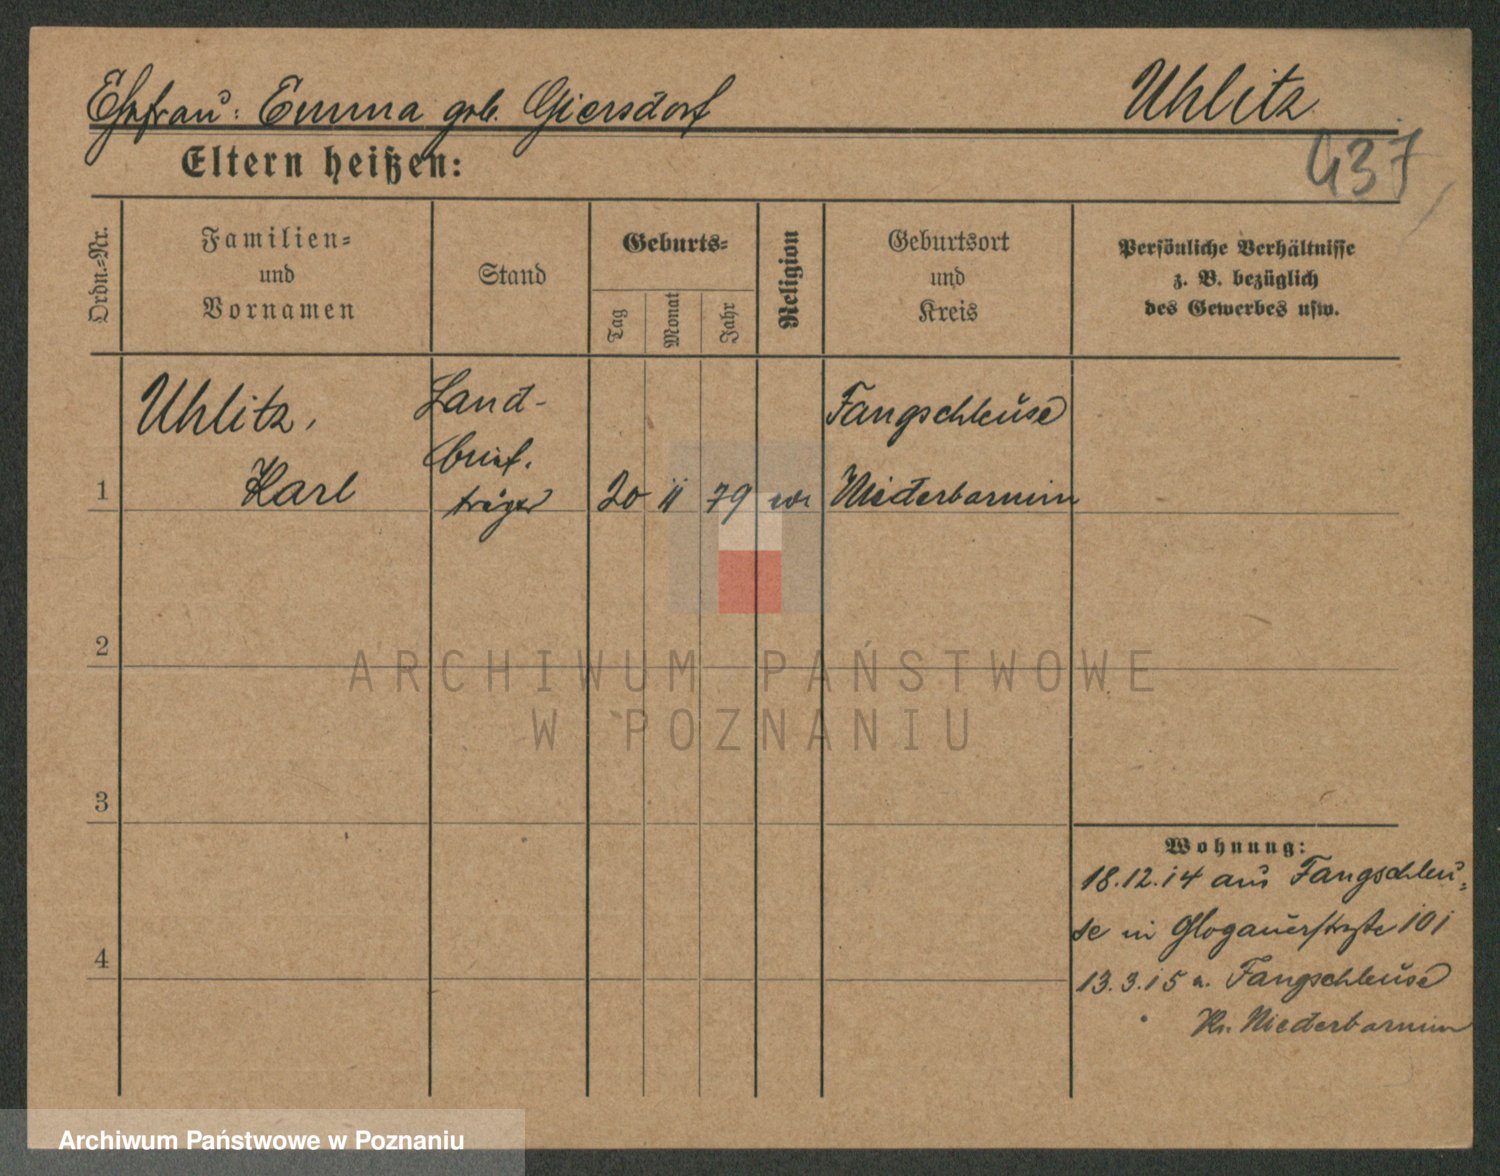 Ehefrau: Emma geb. Giersdorf
Uhlitz
437
Eltern heißen:
Ordn.-Nr.
Familien-
und
Vornamen
Stand
Geburts-
Tag
Monat
Jahr
Religion
Geburtsort
und
Kreis
Persönliche Verhältnisse
z. B. bezüglich
des Gewerbes usw.
1
Uhlitz,
Karl
Land-
brief.
träger
20
11
79
ev
Fangschleuse
Niederbarnim
2
3
4
Wohnung:
18.12.14 aus Fangschleu-
se in Glogauerstraße 101
13.3.15 n. Fangschleuse
Kr. Niederbarnim
ARCHIWUM PAŃSTWOWE
W POZNANIU
Archiwum Państwowe w Poznaniu